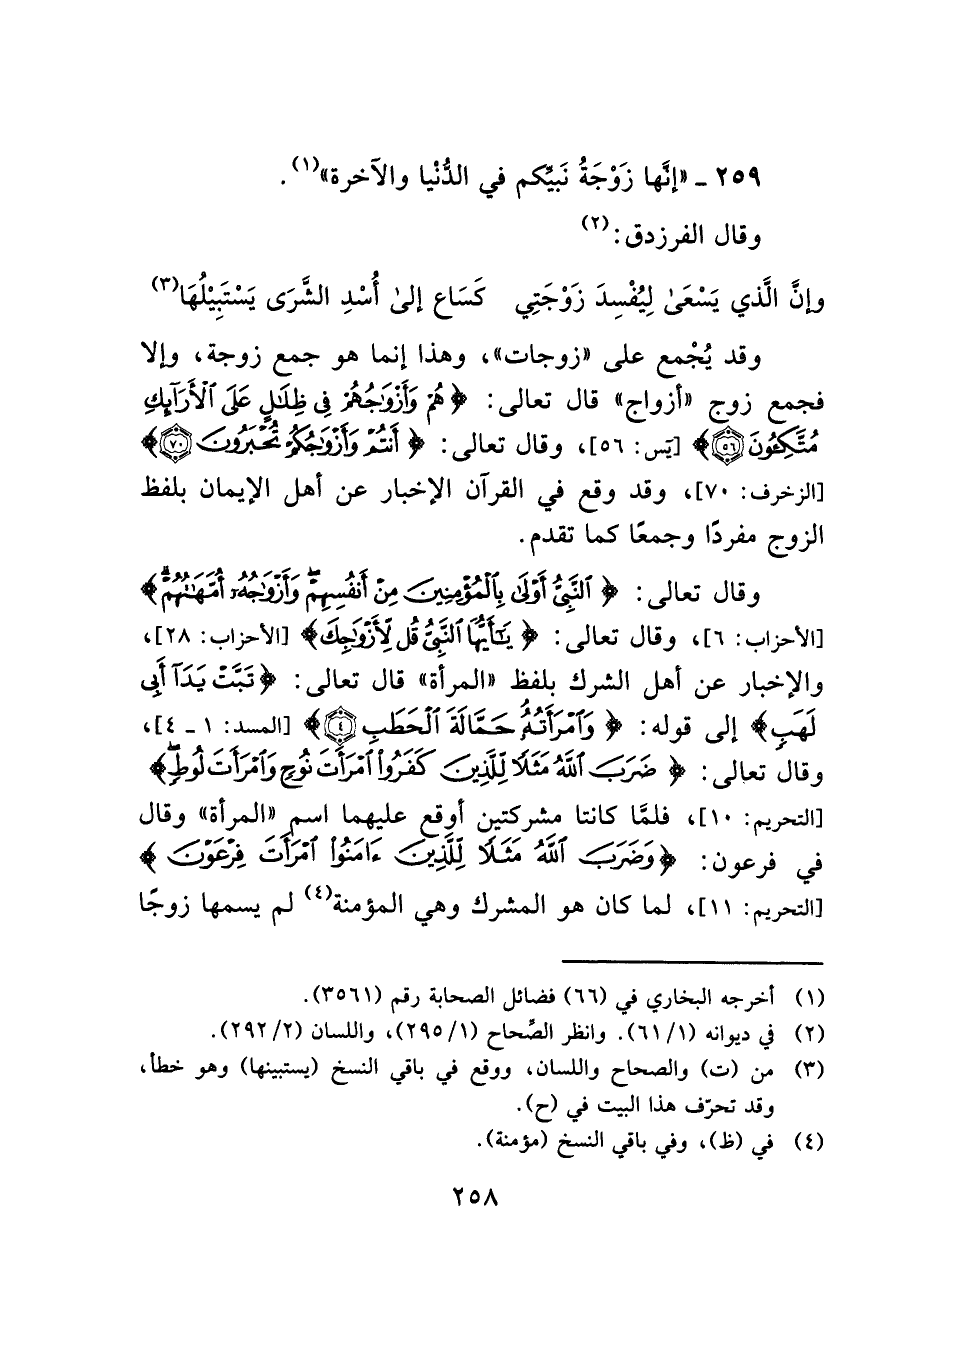 ٢٥٩ ـ «إنَّها زَوْجَةُ نَبيِّكم في الدُّنْيا والآخرة»(١).
وقال الفرزدق:(٢)
وإنَّ الَّذي يَسْعَىٰ لِيُفْسِدَ زَوْجَتِي كَسَاعٍ إلىٰ أُسْدِ الشَّرَى يَسْتَبِيْلُهَا(٣)
وقد يُجْمع على «زوجات»، وهذا إنما هو جمع زوجة، وإلا
فجمع زوج «أزواج» قال تعالى: ﴿هُمْ وَأَزْوَٰجُهُمْ فِى ظِلَٰلٍ عَلَى ٱلْأَرَآئِكِ
مُتَّكِـُٔونَ ٥٦﴾ [يَس: ٥٦]، وقال تعالى: ﴿أَنتُمْ وَأَزْوَٰجُكُمْ تُحْبَرُونَ ٧٠﴾
[الزخرف: ٧٠]، وقد وقع في القرآن الإخبار عن أهل الإيمان بلفظ
الزوج مفردًا وجمعًا كما تقدم.
وقال تعالى: ﴿ٱلنَّبِىُّ أَوْلَىٰ بِٱلْمُؤْمِنِينَ مِنْ أَنفُسِهِمْ ۖ وَأَزْوَٰجُهُۥٓ أُمَّهَٰتُهُمْ ۗ﴾
[الأحزاب: ٦]، وقال تعالى: ﴿يَٰٓأَيُّهَا ٱلنَّبِىُّ قُل لِّأَزْوَٰجِكَ﴾ [الأحزاب: ٢٨]،
والإخبار عن أهل الشرك بلفظ «المرأة» قال تعالى: ﴿تَبَّتْ يَدَآ أَبِى
لَهَبٍ﴾ إلى قوله: ﴿وَٱمْرَأَتُهُۥ حَمَّالَةَ ٱلْحَطَبِ ٤﴾ [المسد: ١ ـ ٤]،
وقال تعالى: ﴿ضَرَبَ ٱللَّهُ مَثَلًا لِّلَّذِينَ كَفَرُوا۟ ٱمْرَأَتَ نُوحٍ وَٱمْرَأَتَ لُوطٍ ۖ﴾
[التحريم: ١٠]، فلمَّا كانتا مشركتين أوقع عليهما اسم «المرأة» وقال
في فرعون: ﴿وَضَرَبَ ٱللَّهُ مَثَلًا لِّلَّذِينَ ءَامَنُوا۟ ٱمْرَأَتَ فِرْعَوْنَ﴾
[التحريم: ١١]، لما كان هو المشرك وهي المؤمنة(٤) لم يسمها زوجًا
(١) أخرجه البخاري في (٦٦) فضائل الصحابة رقم (٣٥٦١).
(٢) في ديوانه (١/ ٦١). وانظر الصِّحاح (١/ ٢٩٥)، واللسان (٢/ ٢٩٢).
(٣) من (ت) والصحاح واللسان، ووقع في باقي النسخ (يستبينها) وهو خطأ،
وقد تحرّف هذا البيت في (ح).
(٤) في (ظ)، وفي باقي النسخ (مؤمنة).
٢٥٨